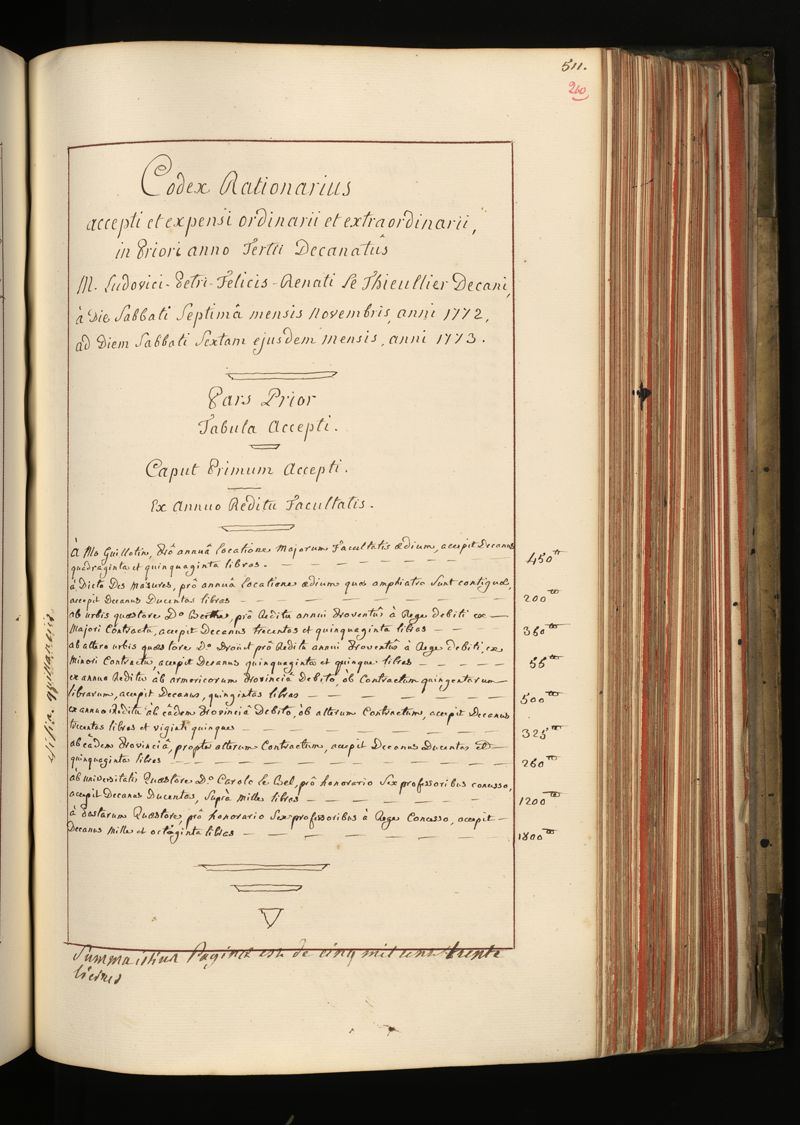 511.
260
Codex Rationarius
accepti et expensi ordinarii et extraordinarii,
in Priori anno Tertii Decanatûs
M. Ludovici-Petri-Felicis-Renati Le Thieullier Decani,
à Die Sabbati Septimâ mensis Novembris, anni 1772,
ad Diem Sabbati Sextam ejusdem mensis, anni 1773.
Pars Prior
Tabula Accepti.
Caput Primum Accepti.
Ex Annuo Reditu Facultatis.
À Mo Guillotin, Prô annuâ locatione Majorum Facultatis ædium, accepit Decanus
quadraginta et quinquaginta libros. 450 tt
à Dicto Des Masures, prô annuâ locatione ædium quæ amphiatro sunt contiguæ,
accepit Decanus Ducentas libras 200 tt
ab urbis quæstore Do Berthe, prô Reditu annui Proventûs à Rege debiti ex
Majori Contractu, accepit Decanus trecentas et quinquaginta libras 350 tt
ab altero urbis quæstore Do Drouet prô Reditu annui Proventûs à Rege debiti, ex
Minori Contractu, accepit Decanus quinquaginta et quinque libras 55 tt
ex annuo Reditu ab armoricorum Provinciâ Debito, ob Contractum quingentarum
librarum, accepit Decanus, quingintas libras 500 tt
ex annuo Reditu ab eâdem Provinciâ Debito, ob alterum Contractum, accepit Decanus
trecentas libras et viginti quinque 325 tt
ab eâdem Provinciâ, propter alterum Contractum, accepit Decanus Ducentas et
quinquaginta libras 250 tt
ab universitatis Quæstore Do Carolo Le Bel, prô honorario Sex professoribus concesso,
accepit Decanus Ducentas, Suprà Mille libras 1200 tt
à Postarum Quæstore, prô honorario Sex professoribus à Rege Concesso, accepit
Decanus Mille et octoginta libras 1800 tt
Summa istius Paginæ est de cinq mil cent trente
livres